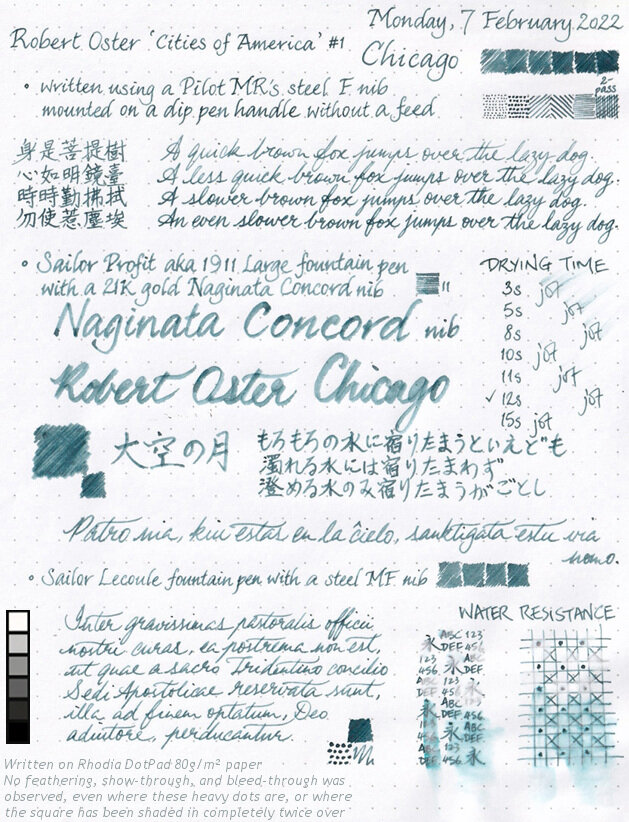 Monday, 7 February 2022
Robert Oster 'Cities of America' #1
Chicago
• written using a Pilot MR's steel F nib
mounted on a dip pen handle without a feed
2-
pass
身是菩提樹
心如明鏡臺
時時勤拂拭
勿使惹塵埃
A quick brown fox jumps over the lazy dog.
A less quick brown fox jumps over the lazy dog.
A slower brown fox jumps over the lazy dog.
An even slower brown fox jumps over the lazy dog.
• Sailor Profit aka 1911 Large fountain pen
with a 21K gold Naginata Concord nib
Naginata Concord nib
Robert Oster Chicago
DRYING TIME
3s jot
5s jot
8s jot
10s jot
11s jot
✓ 12s jot
15s jot
大空の月
もろもろの水に宿りたまうといえども
濁れる水には宿りたまわず
澄める水のみ宿りたまうがごとし
Patro nia, kiu estas en la ĉielo, sanktigata estu via
nomo.
• Sailor Lecoule fountain pen with a steel MF nib
Inter gravissimas pastoralis officii
nostri curas, ea postrema non est,
ut quae a sacro Tridentino concilio
Sedi Apostolicae reservata sunt,
illa ad finem optatum, Deo
adiutore, perducantur.
WATER RESISTANCE
永 ABC 123
DEF 456
123 永 ABC
456 DEF
ABC 123 永
DEF 456
永 ABC
DEF
123 永
456
ABC 123 永
DEF 456
Written on Rhodia DotPad 80g/m² paper
No feathering, show-through, and bleed-through was
observed, even where these heavy dots are, or where
the square has been shaded in completely twice over